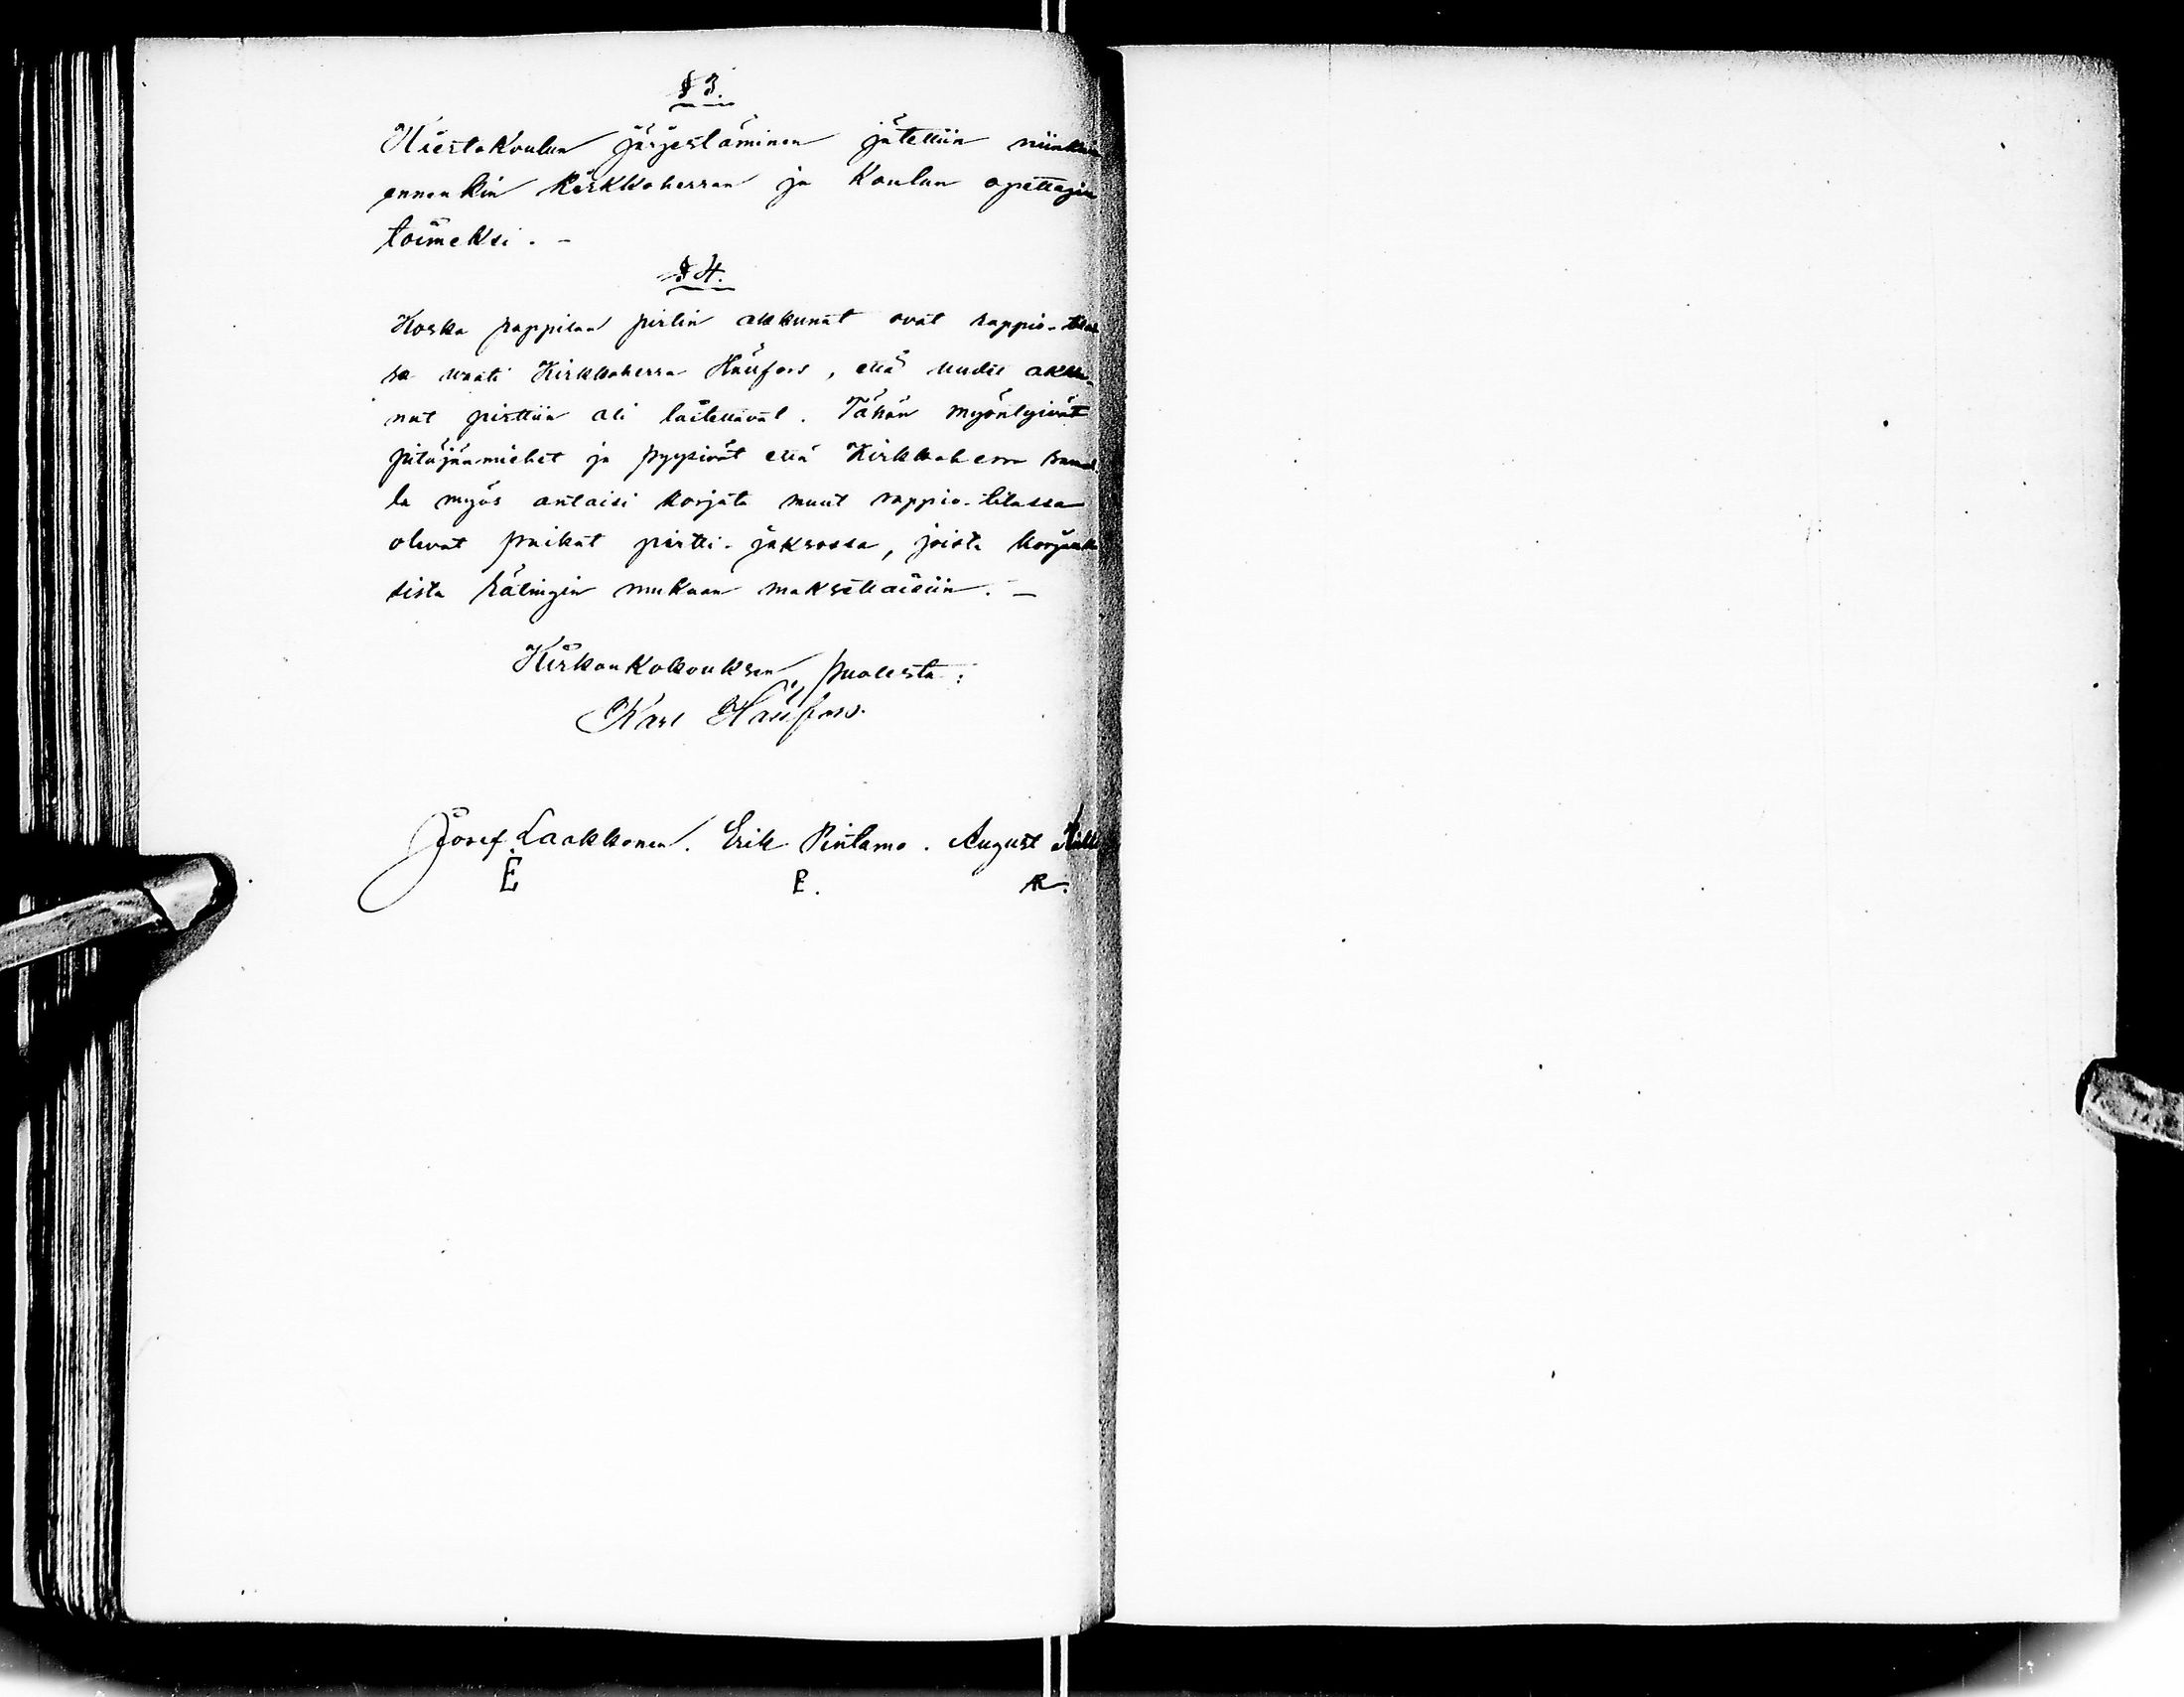 § 3.
Kiertokoulun järjestäminen jätettiin niinkuin
ennenkin kirkkoherran ja koulun opettajan
toimeksi. –
§ 4.
Koska pappilan pirtin akkunat ovat rappio-tilas
sa vaati Kirkkoherra Hällfors, että uudet akku-
nat pirttiin oli laitettavat. Tähän myöntyivät
pitäjänmiehet ja pyysivät että Kirkkoherra samal
la myös antaisi korjata muut rappio-tilassa
olevat paikat pirtti-jaksossa, joista korjauk
sista rätingin mukaan maksettaisiin. –
Kirkonkokouksen puolesta:
Karl Hällfors.
Josef Laakkonen. Erik Pintamo. August
E E. AR.